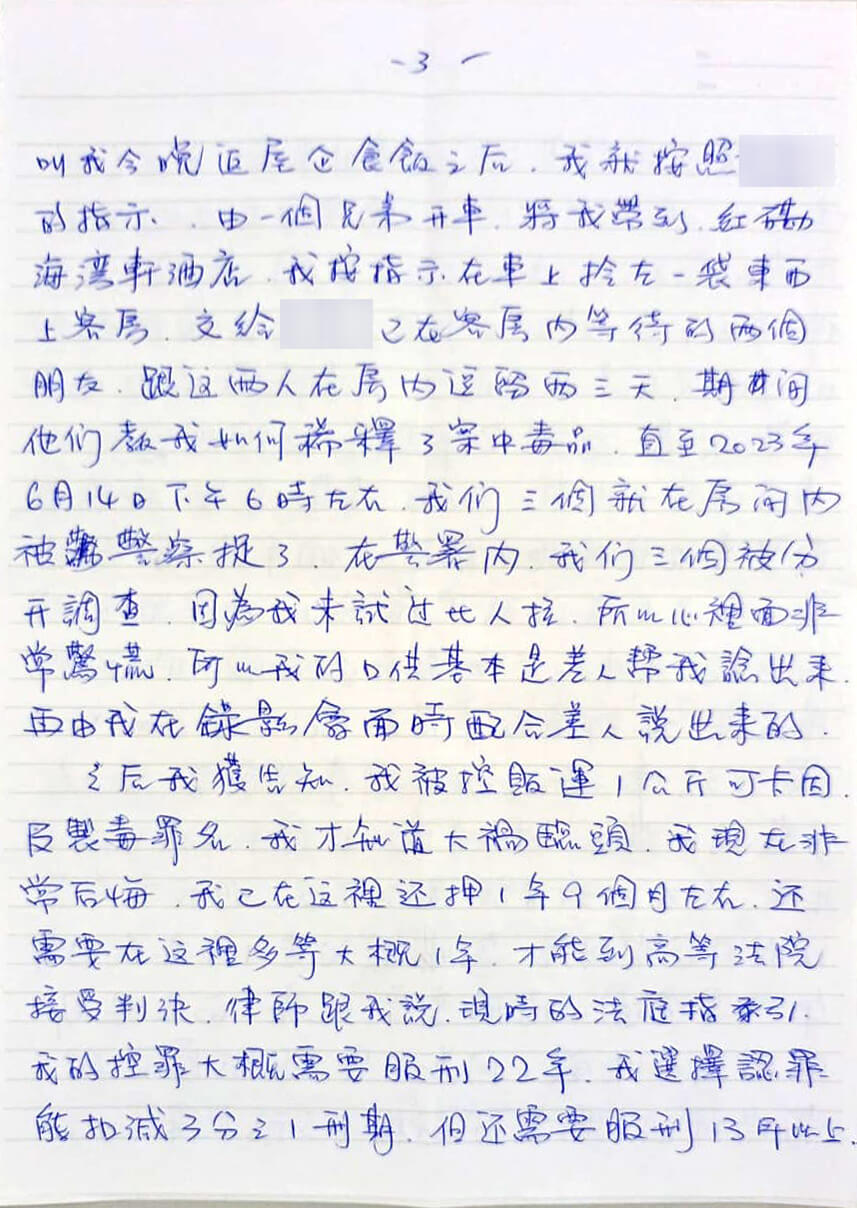 -3-
叫我今晚返屋企食飯之后．我就按照
的指示．由一個兄弟开車．將我帶到．紅磡
海湾軒酒店．我按指示在車上拎左一袋東西
上客房．交給 已在客房内等待的两個
朋友．跟这两人在房内逗留两三天．期间
他们教我如何稀釋了案中毒品．直至2023年
6月14日下午6時左右．我们三個就在房间内
被警察捉了．在警署内．我们三個被分
开調查．因為我未試过比人拉．所以心裡面非
常驚慌．所以我的口供基本是差人幫我諗出來．
再由我在錄影會面時配合差人説出来的．
之后我獲告知．我被控販運1公斤可卡因．
及製毒罪名．我才知道大禍臨頭．我現在非
常后悔．我已在这裡还押1年9個月左右．还
需要在这裡多等大概1年．才能到高等法院
接受判决．律師跟我説．現時的法庭指引．
我的控罪大概需要服刑22年．我選擇認罪
能扣減3分之1刑期．但还需要服刑13年以上．